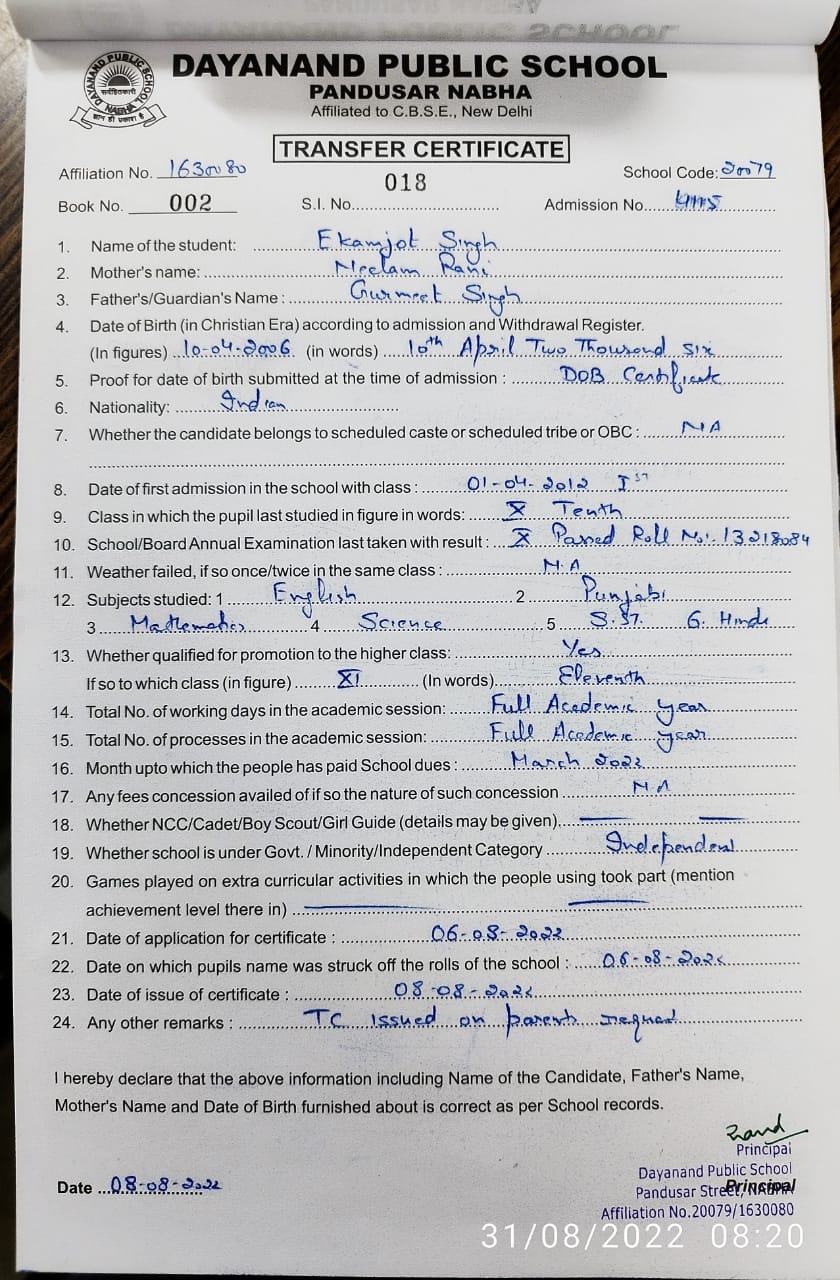 DAYANAND PUBLIC SCHOOL NABHA
सर्वहितकारी
ज्ञान ही प्रकाश है
DAYANAND PUBLIC SCHOOL
PANDUSAR NABHA
Affiliated to C.B.S.E., New Delhi
TRANSFER CERTIFICATE
Affiliation No. 1630080 School Code: 20079
Book No. 002 S.I. No. 018 Admission No.
1. Name of the student: Ekamjot Singh
2. Mother's name: Neelam Rani
3. Father's/Guardian's Name : Gurmeet Singh
4. Date of Birth (in Christian Era) according to admission and Withdrawal Register.
(In figures) 10-04-2006 (in words) 10th April Two Thousand Six
5. Proof for date of birth submitted at the time of admission : DOB Certificate
6. Nationality: Indian
7. Whether the candidate belongs to scheduled caste or scheduled tribe or OBC : NA
8. Date of first admission in the school with class : 01-04-2012 Ist
9. Class in which the pupil last studied in figure in words: X Tenth
10. School/Board Annual Examination last taken with result : X Passed Roll No:- 13218084
11. Weather failed, if so once/twice in the same class : N.A
12. Subjects studied: 1 English 2 Punjabi
3 Mathematics 4 Science 5 S.St. 6. Hindi
13. Whether qualified for promotion to the higher class: Yes
If so to which class (in figure) XI (In words) Eleventh
14. Total No. of working days in the academic session: Full Academic year
15. Total No. of processes in the academic session: Full Academic year
16. Month upto which the people has paid School dues : March 2022
17. Any fees concession availed of if so the nature of such concession N.A
18. Whether NCC/Cadet/Boy Scout/Girl Guide (details may be given).
19. Whether school is under Govt. / Minority/Independent Category Independent
20. Games played on extra curricular activities in which the people using took part (mention
achievement level there in)
21. Date of application for certificate : 06-08-2022
22. Date on which pupils name was struck off the rolls of the school : 06-08-2022
23. Date of issue of certificate : 08-08-2022
24. Any other remarks : TC issued on parents request
I hereby declare that the above information including Name of the Candidate, Father's Name,
Mother's Name and Date of Birth furnished about is correct as per School records.
Principal
Dayanand Public School
Date 08-08-2022 Pandusar Street, NABHA Principal
Affiliation No.20079/1630080
31/08/2022 08:20